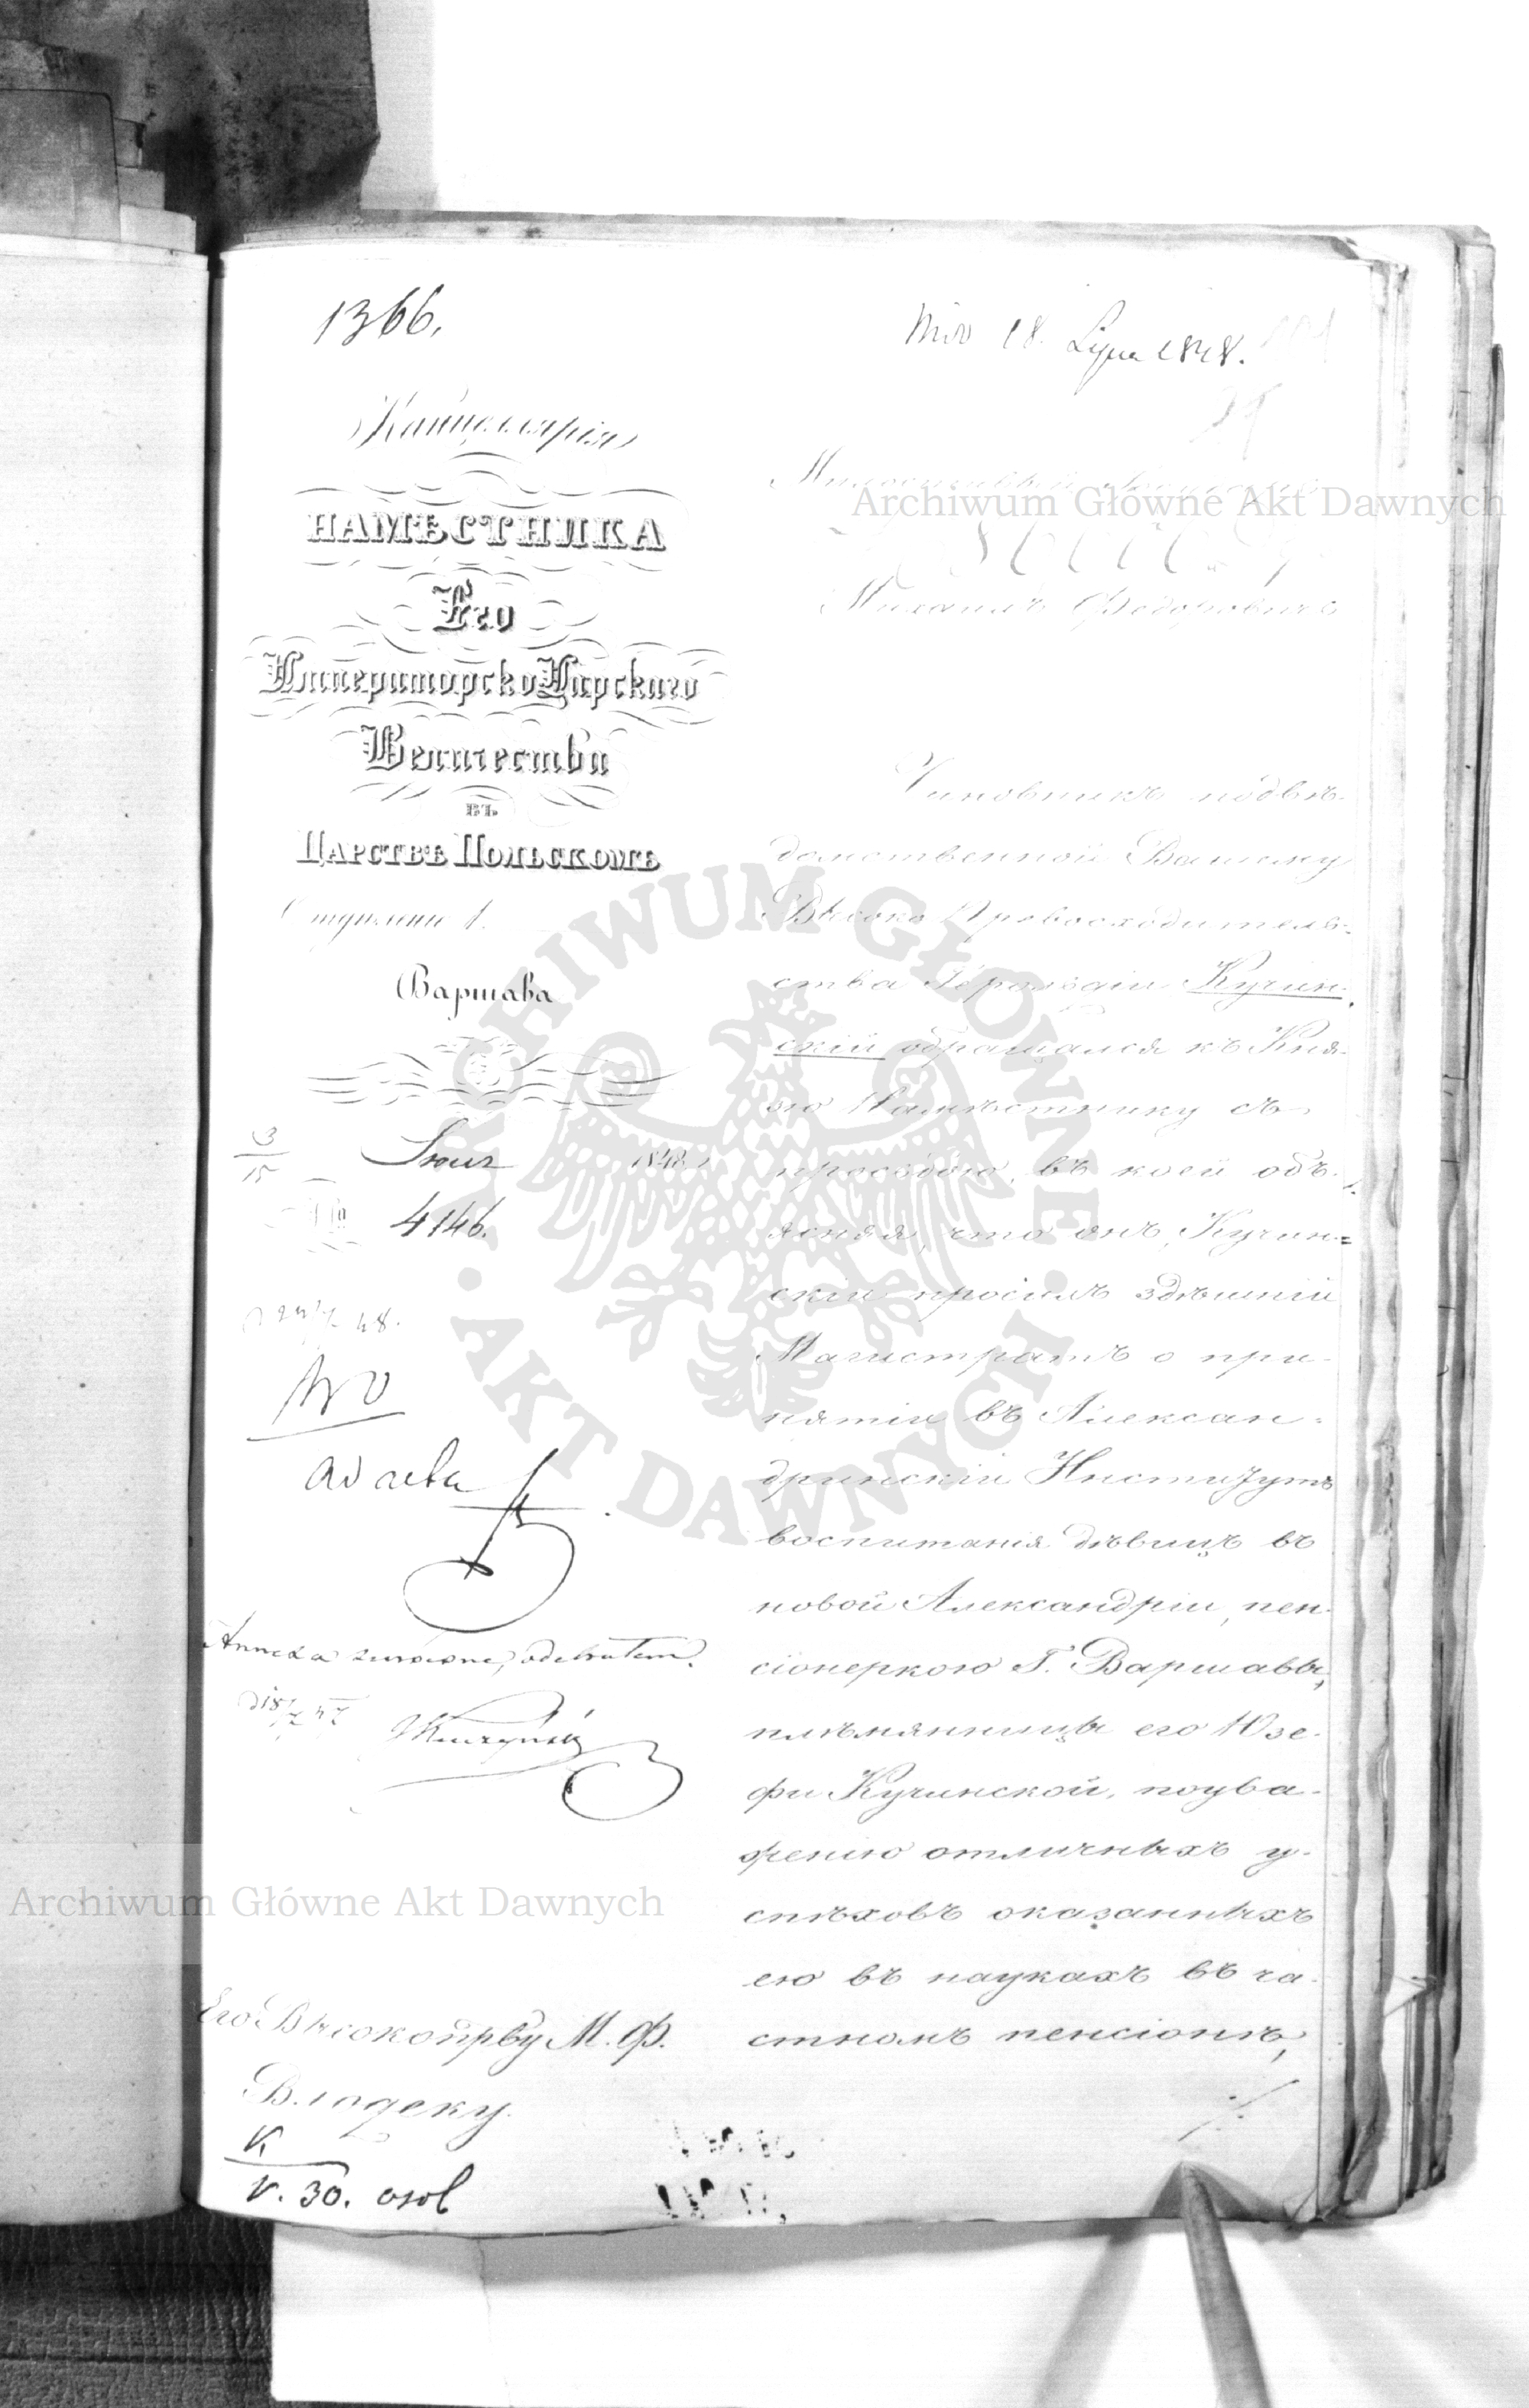 1366.
18. Lipca 1848.
Канцелярія
НАМѢСТНИКА
Его
ИмператорскоЦарскаго
Величества
ВЪ
ЦАРСТВѢ ПОЛЬСКОМЪ
Отдѣленіе 1.
Варшава
3/15 1848
4146.
48.
ad acta
Annexa zwrócone, odebrałem.
Kuczyński
Его Высокопрву М. Ф.
Влодеку.
K
V. 30. osob
Милостивый Государь
Михаилъ Федоровичъ
Чиновникъ подвѣ-
домственной Вашему
Высоко Превосходитель-
ства Герольдіи Кучин-
скій обращался къ Кня-
зю Намѣстнику съ
просьбою, въ коей объ-
ясняя, что онъ, Кучин=
скій просилъ здѣшній
Магистратъ о при-
нятіи въ Алексан-
дринскій Институтъ
воспитанія дѣвицъ въ
новой Александріи, пен-
сіонеркою Г. Варшавы,
племянницы его Юзе-
фы Кучинской, по ува-
женію отличныхъ у-
спѣховъ оказанныхъ
ею въ наукахъ въ ча-
стномъ пенсіонѣ,
Archiwum Główne Akt Dawnych
ARCHIWUM GŁÓWNE AKT DAWNYCH
Archiwum Główne Akt Dawnych